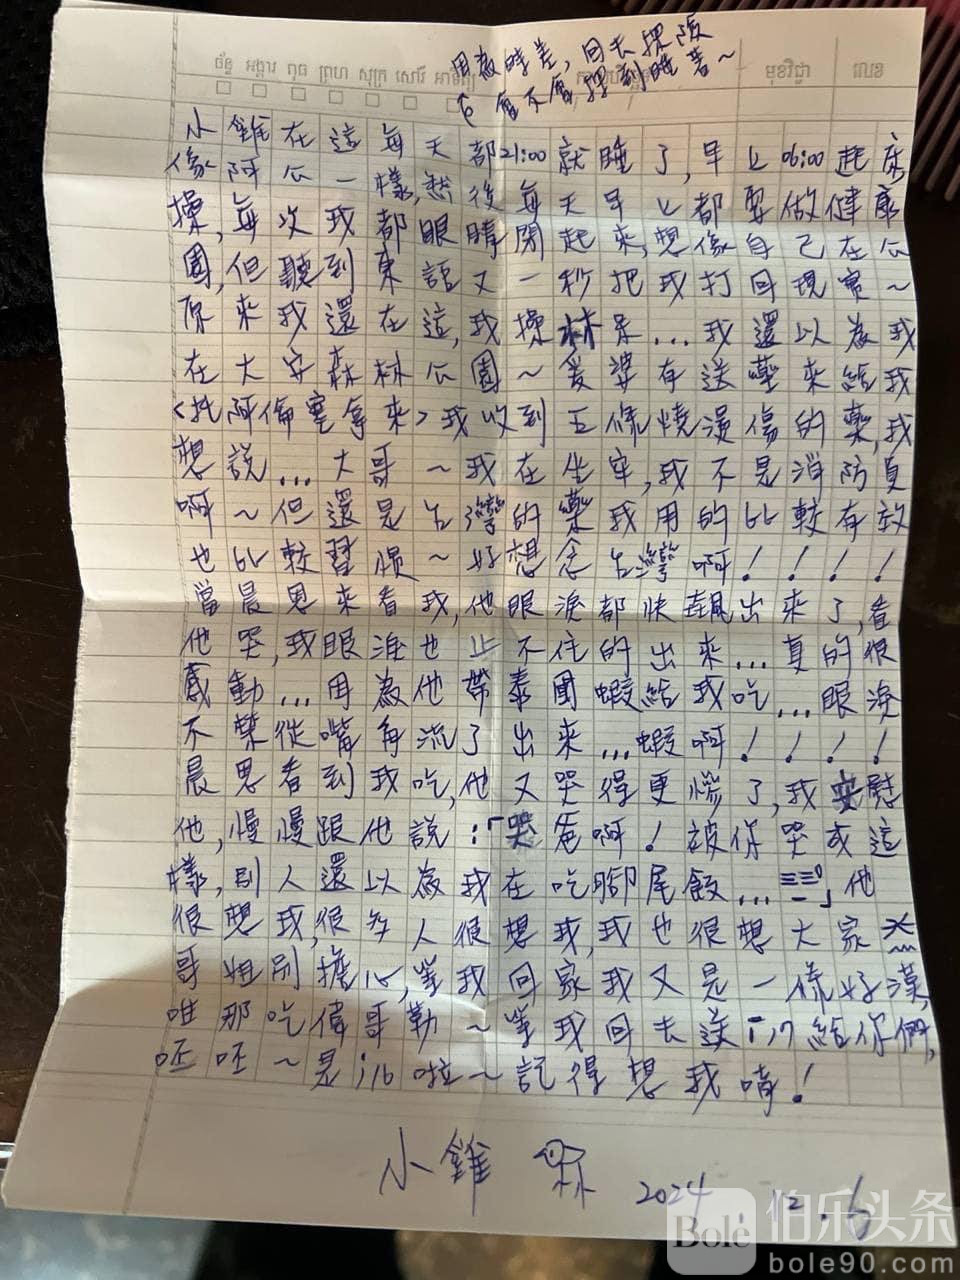 ច័ន្ទ អង្គារ ពុធ ព្រហ សុក្រ សៅរ៍ អាទិត្យ
មុខវិជ្ជា
លេខ
因為時差,回去探險
會不會擇到睡著~
小雞在這每天都21:00就睡了,早上06:00起床
像阿公一樣,然後每天早上都要做健康
操,每次我都眼睛閉起來,想像自己在公
園,但聽到柬語又一秒把我打回現實~
原來我還在這,我操林呆...我還以為我
在大安森林公園~爰婆有送藥來給我
<托阿倫寄拿來>我收到五條燒燙傷的藥,我
想說...大哥~我在坐牢,我不是消防員
啊~但還是台灣的藥我用的比較有效
也比較習慣~好想念台灣啊!!!!
當晨恩來看我,他眼淚都快飆出來了,看
他哭,我眼淚也止不住的出來...真的很
感動...因為他帶泰國蝦給我吃...眼淚
不禁從嘴角流了出來...蝦啊!!!!
晨恩看到我吃,他又哭得更慘了,我安慰
他,慢慢跟他說:「哭爸啊!被你哭成這
樣,別人還以為我在吃腳尾飯...」他
很想我,很多人很想我,我也很想大家
哥姐別擔心,等我回家我又是一條好漢,
唯那吃偉哥勒~等我回去送i17給你們,
呸呸~是i16啦~記得想我唷!
小雞 2024.12.6
Bole 伯乐头条
bole90.com